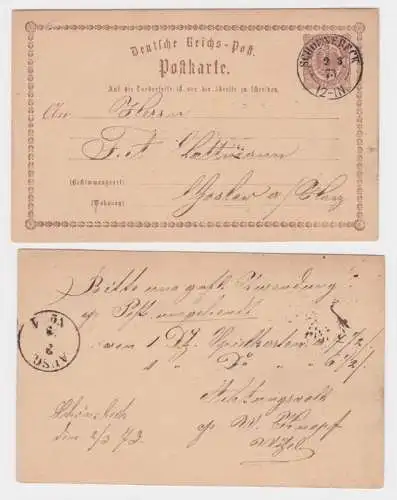 Deutsche Reichs-Post.
Postkarte.
Auf die Vorderseite ist nur die Adresse zu schreiben.
SCHOENEBECK
2 3
73
12-1N.
An Herrn
F. A. Lattmann
(Bestimmungsort)
Goslar a/Harz
(Wohnung)
Bitte um gefl. Zusendung
p. Post umgehend
von 1 Dz. Spielkarten
1 " Do "
AUSG.
Achtungsvoll
W. Knopf
Schönebeck
den 2/3 73.